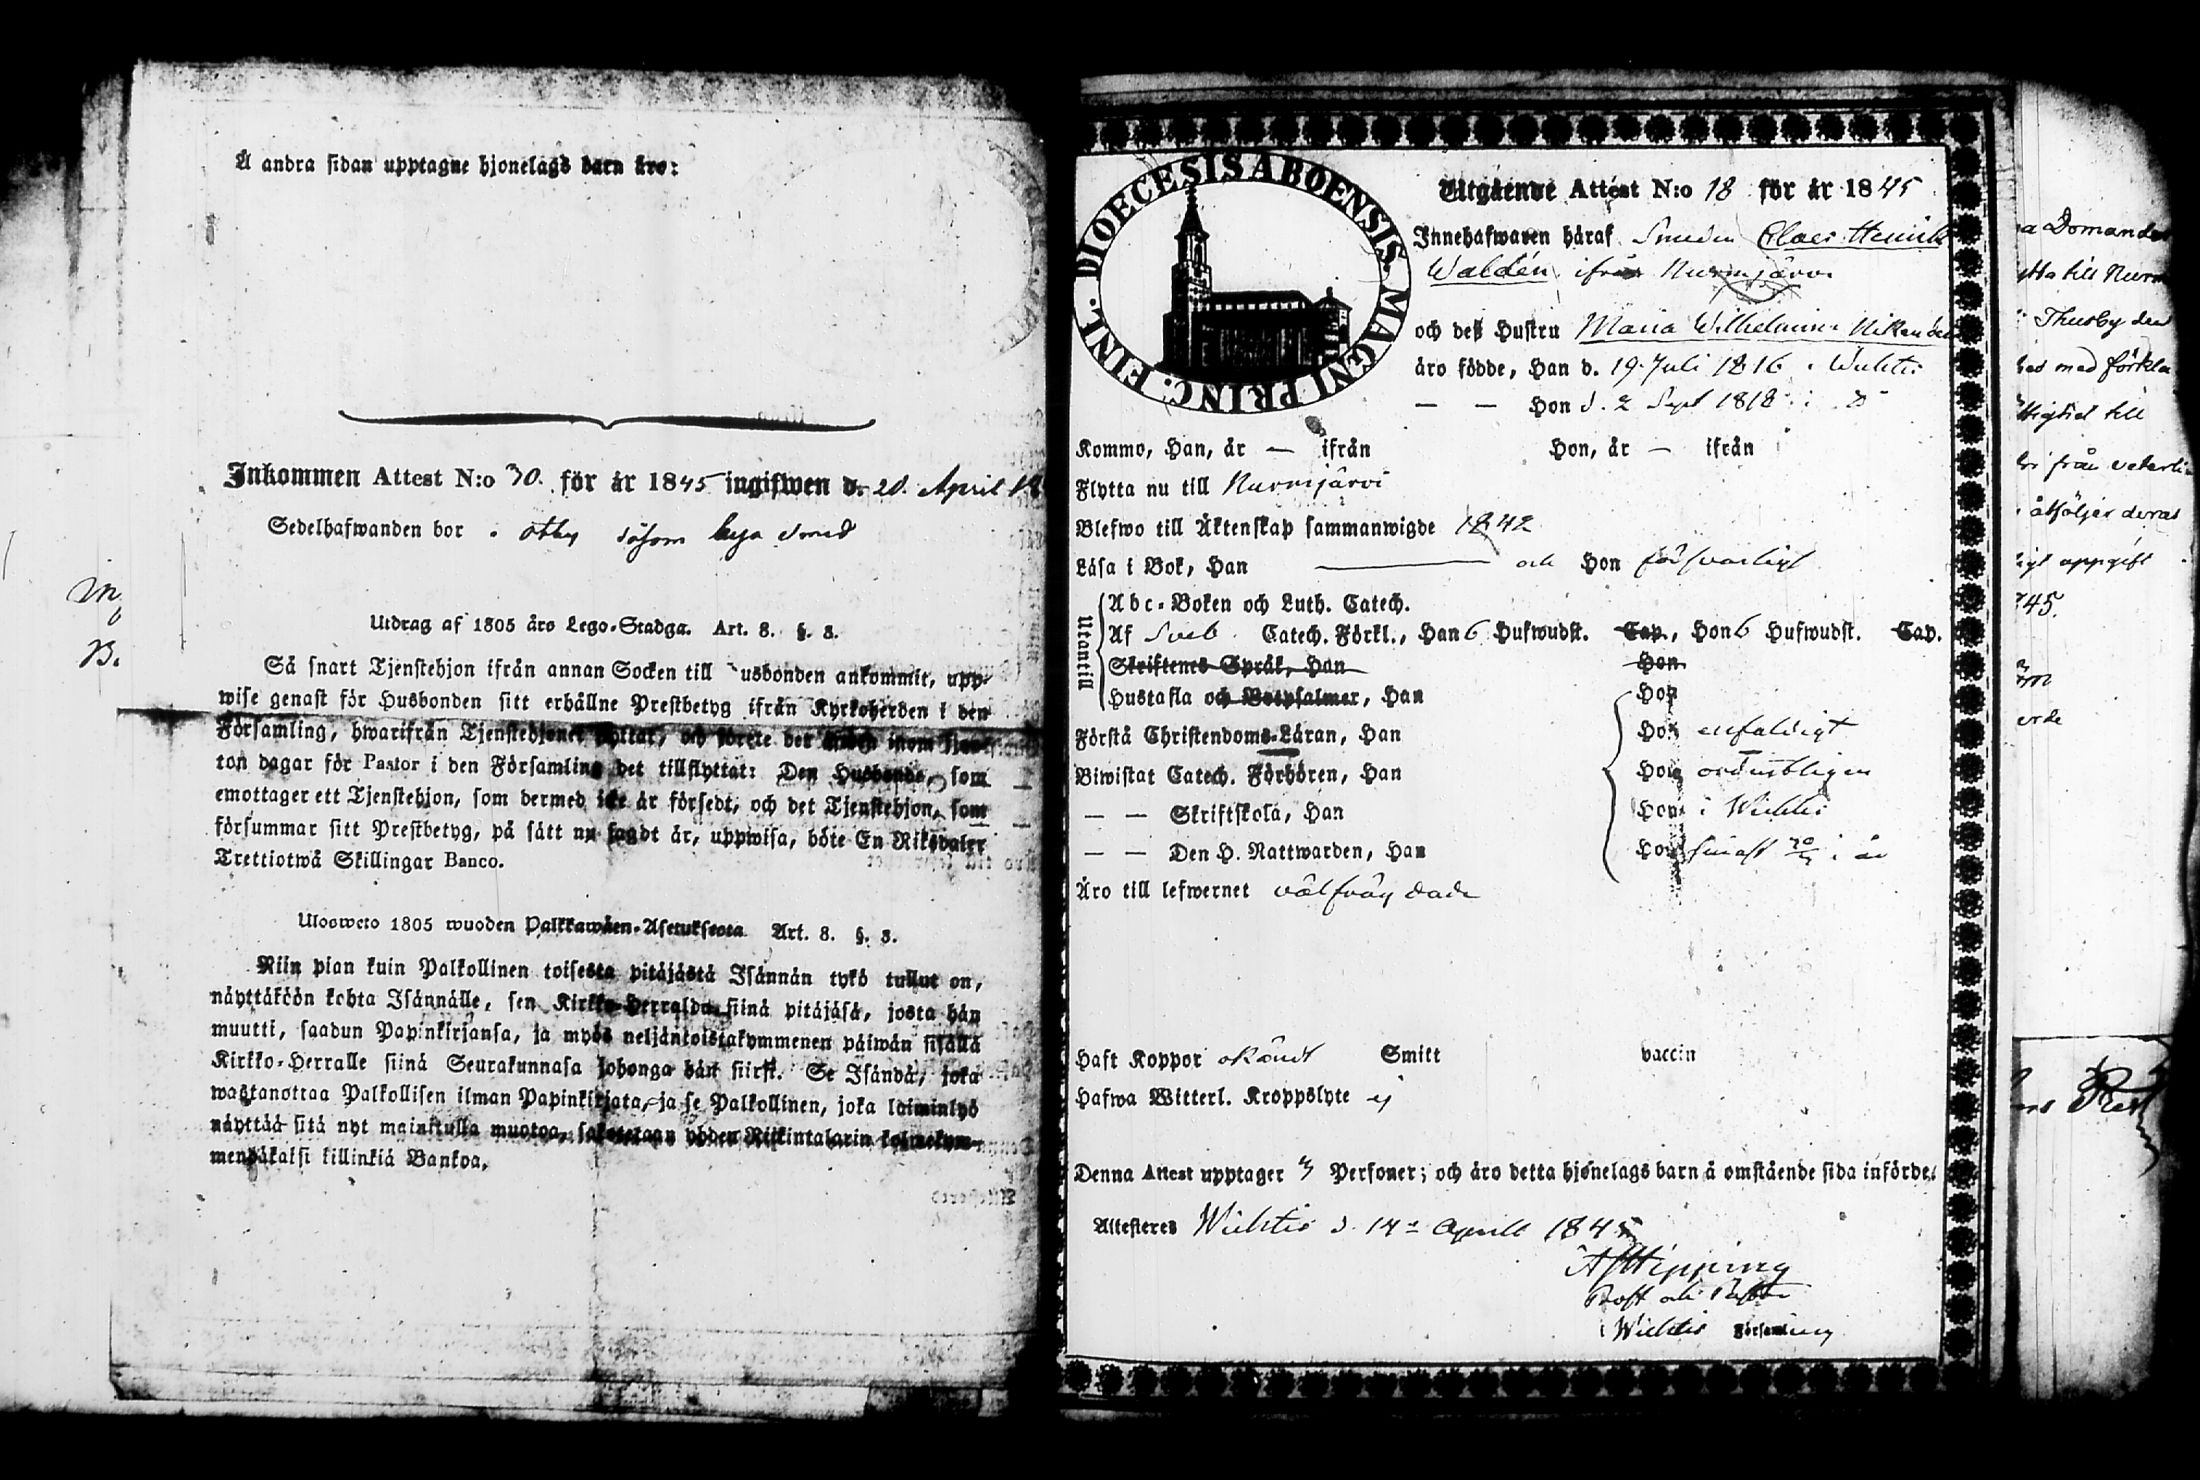 Å andra sidan upptagne hjonelags barn äro:
Inkommen Attest N:o 30. för år 1845 ingifwen d. 20. April
Sedelhafwanden bor i Otby såsom bya smed
Utdrag af 1805 års Lego-Stadga. Art. 8. §. 3.
Så snart Tjenstehjon ifrån annan Socken till usbonden ankommit, upp-
wise genast för Husbonden sitt erhållne Prestbetyg ifrån Kyrkoherden i den
Församling, hwarifrån Tjenstehjonet flyttat, och förete det sedan inom fjor-
ton dagar för Pastor i den Församling det tillflyttat: Den Husbonde, som
emottager ett Tjenstehjon, som dermed icke är försedt, och det Tjenstehjon, som
försummar sitt Prestbetyg, på sätt nu sagdt är, uppwisa, böte En Riksdaler
Trettiotwå Skillingar Banco.
Ulosweto 1805 wuoden Palkkawäen-Asetuksesta Art. 8. §. 3.
Niin pian kuin Palkollinen toisesta pitäjästä Isännän tykö tullut on,
näyttäköön kohta Isännälle, sen Kirkko-Herralda siinä pitäjäsä, josta hän
muutti, saadun Papinkirjansa, ja myös neljäntoistakymmenen päiwän sisällä
Kirkko-Herralle siinä Seurakunnasa johonga hän siirsi. Se Isändä, joka
wastanottaa Palkollisen ilman Papinkirjata, ja se Palkollinen, joka laiminlyö
näyttää sitä nyt mainitulla muotoa, sakotetaan yhden Riikintalarin kolmekym-
mendäkaksi killinkiä Bankoa.
DIOECESIS ABOENSIS. MAGNI PRINC. FINL.
Utgående Attest N:o 18 för år 1845
Innehafwaren häraf Smeden Claes Henrik
Waldén ifrån Nurmijärvi
och dess Hustru Maria Wilhelmina Nikander
äro födde, Han d. 19 Juli 1816 i Wichtis
— — Hon d. 2 Sept 1818 i D
Kommo, Han, år — ifrån Hon, år — ifrån
Flytta nu till Nurmijärvi
Blefwo till Äktenskap sammanwigde 1842
Läsa i Bok, Han — och Hon försvarligt
Utantill
Abc-Boken och Luth. Catech.
Af Sveb. Catech. Förkl., Han 6 Hufwudst. Cap., Hon 6 Hufwudst. Cap.
Skriftenes Språk, Han Hon
Hustafla och Botpsalmer, Han Hon
Förstå Christendoms-Läran, Han Hon enfaldigt
Biwistat Catech. Förhören, Han Hon ordentligen
— — Skriftskola, Han Hon i Wichtis
— — Den H. Nattwarden, Han Hon senast i år
Äro till lefwernet välfrägdade
Haft Koppor okändt Smitt vaccin
Hafwa Witterl. Kroppslyte ej
Denna Attest upptager Personer; och äro detta hjonelags barn å omstående sida införde.
Attesteres Wichtis d. 14 April 1845
AJ Hipping
Prost och Pastor
i Wichtis Församling
Domander
till Nurm
Thusby den
med förkla
till
från veterli
åtföljer deras
uppgift
45.